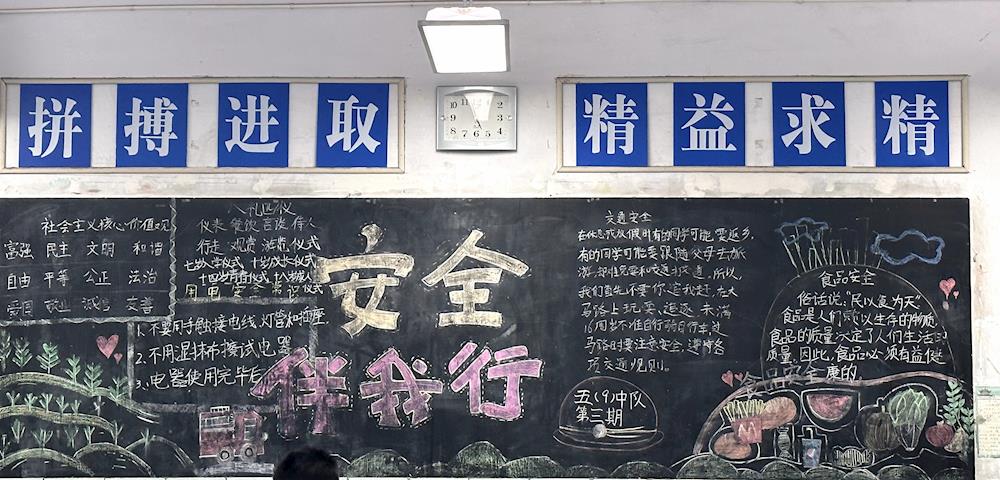 拼搏进取
精益求精
10
2
9
3
8
4
7 6 5
社会主义核心价值观
高强 民主 文明 和谐
自由 平等 公正 法治
爱国 敬业 诚信 友善
八礼四仪
仪表 餐饮 言谈 待人
行走 观赏 游览 仪式
七岁入学仪式 十岁成长仪式
十四岁青春仪式 十八岁成人
用电安全常识
1、不要用手触接电线,灯管和插座.
2、不用湿抹布擦试电器
3、电器使用完毕后
安全
伴我行
交通安全
在休息或放假时有的同学可能要返乡,
有的同学可能要跟随父母去旅
我们首先不要你追我赶,在大
马路上玩耍、追逐,未满
马路时要注意安全,遵守各
项交通规则。
五(9)中队
第三期
食品安全
俗话说,"民以食为天"
食品是人们赖以生存的物质.
食品的质量决定了人们生活的
质量.因此,食品必须有益健
食品安全 康的